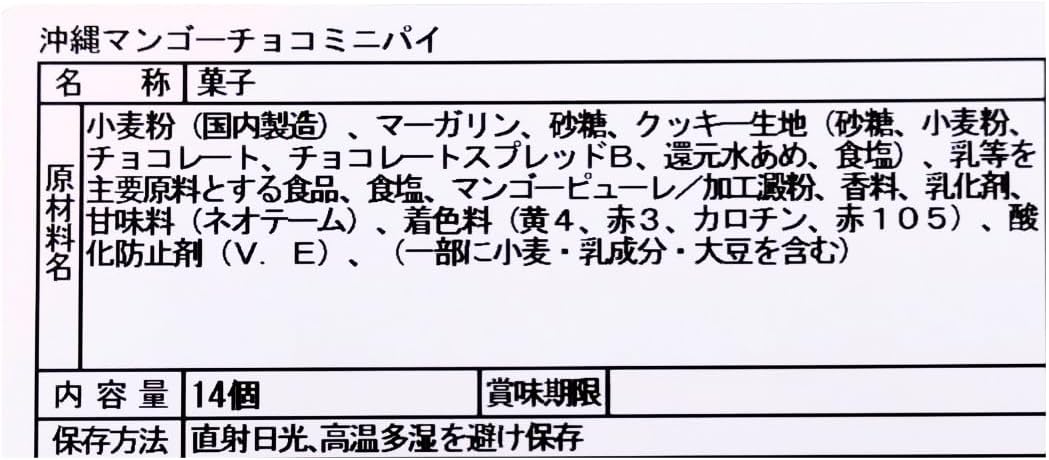 沖縄マンゴーチョコミニパイ
名　称 菓子
原材料名
小麦粉（国内製造）、マーガリン、砂糖、クッキー生地（砂糖、小麦粉、
チョコレート、チョコレートスプレッドB、還元水あめ、食塩）、乳等を
主要原料とする食品、食塩、マンゴーピューレ／加工澱粉、香料、乳化剤、
甘味料（ネオテーム）、着色料（黄４、赤３、カロチン、赤１０５）、酸
化防止剤（V．E）、（一部に小麦・乳成分・大豆を含む）
内容量 14個 賞味期限
保存方法 直射日光、高温多湿を避け保存